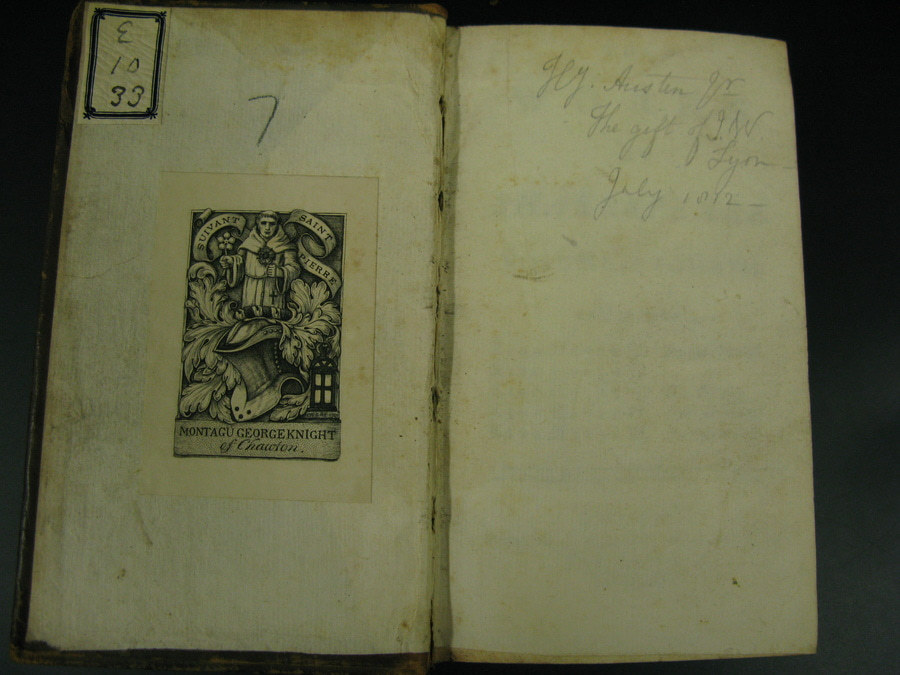 E
10
33
7
SUIVANT SAINT PIERRE
MONTAGU GEORGE KNIGHT
of Chawton.
Austen Jr
The gift of
Lyon
July 1812